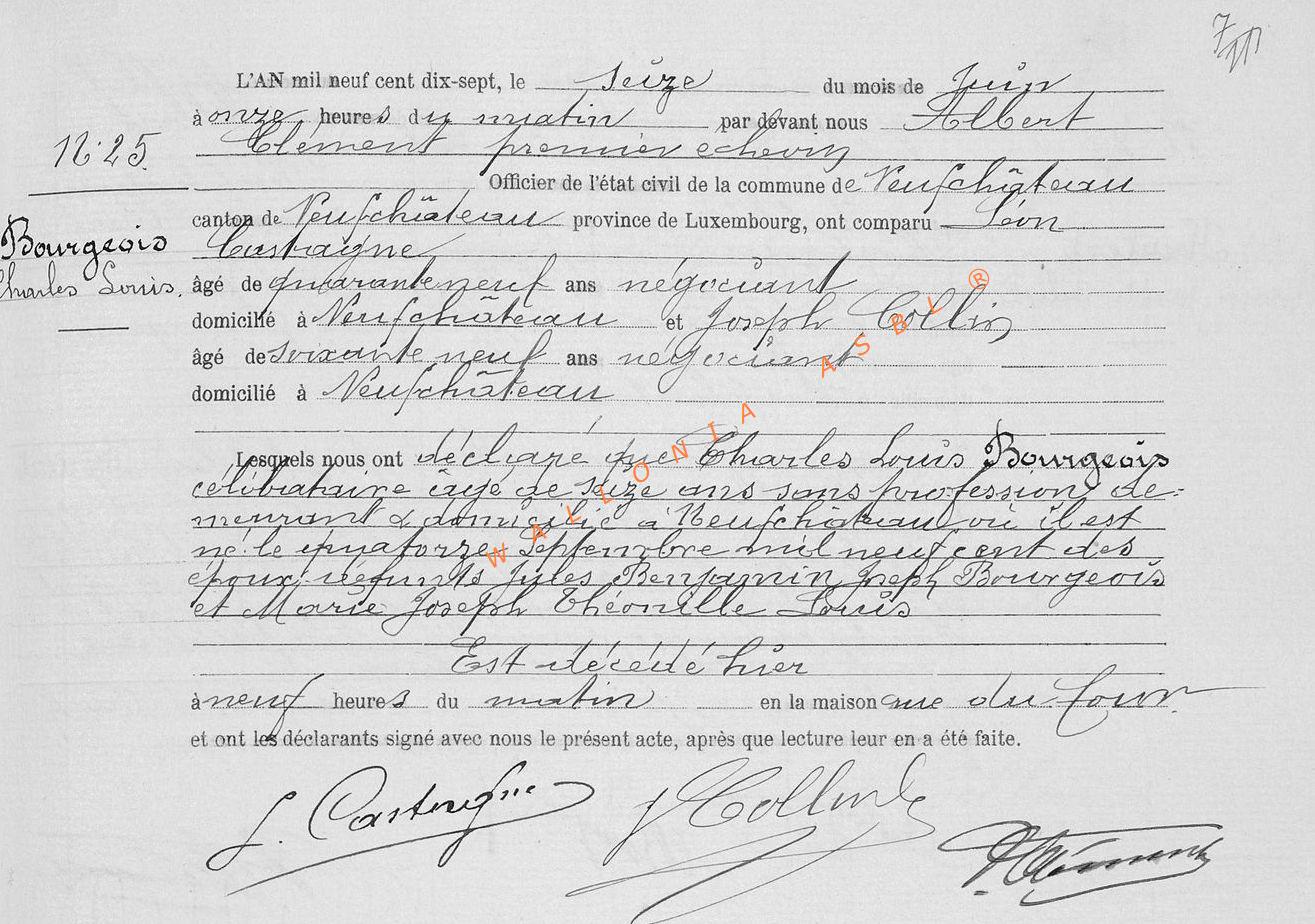 L'AN mil neuf cent dix-sept, le seize du mois de Juin
à onze heures du matin par devant nous Albert
Clément premier échevin
Officier de l'état civil de la commune de Neufchâteau
canton de Neufchâteau province de Luxembourg, ont comparu Léon
Castagne
âgé de quarante neuf ans négociant
domicilié à Neufchâteau et Joseph Collin
âgé de soixante neuf ans négociant
domicilié à Neufchâteau
Lesquels nous ont déclaré que Charles Louis Bourgeois
célibataire âgé de seize ans sans profession, de=
meurant & domicilié à Neufchâteau où il est
né le quatorze Septembre mil neuf cent des
époux défunts Jules Benjamin Joseph Bourgeois
et Marie Joseph Théonille Louis
Est décédé hier
à neuf heures du matin en la maison rue du
et ont les déclarants signé avec nous le présent acte, après que lecture leur en a été faite.
Nº 25
Bourgeois
Charles Louis.
WALLONIA ASBL ®
L. Castagne
J Collin
A Clément